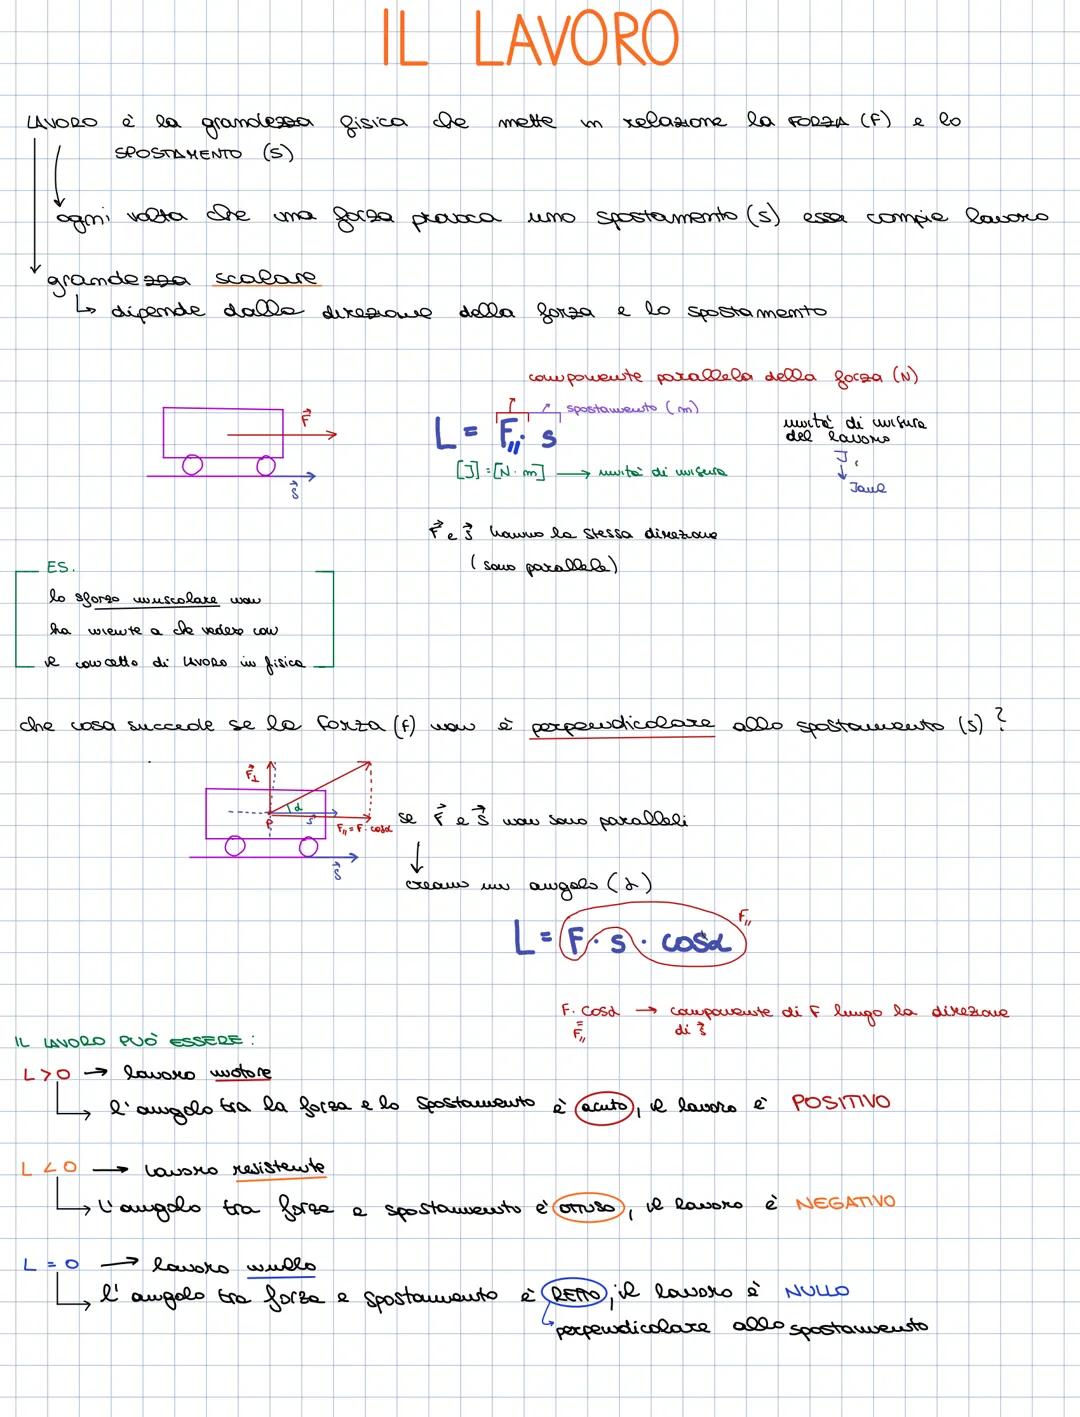 IL LAVORO
LAVORO è la grandezza fisica che mette in relazione la FORZA (F) e lo
SPOSTAMENTO (S)
ogni volta che una forza provoca uno spostamento (s) essa compie lavoro
grandezza scalare
↳ dipende dalla direzione della forza e lo spostamento
componente parallela della forza (N)
spostamento (m)
F⃗
L = F∥ · s
unità di misura
del lavoro
[J] = [N · m] → unità di misura
J
↓
Joule
s⃗
F⃗ e s⃗ hanno la stessa direzione
(sono parallele)
ES.
lo sforzo muscolare non
ha niente a che vedere con
il concetto di LAVORO in fisica
che cosa succede se la forza (F) non è perpendicolare allo spostamento (s) ?
F⃗⊥
α
P
s⃗
F∥ = F · cosα
s⃗
se F⃗ e s⃗ non sono paralleli
↓
creano un angolo (α)
F∥
L = F · s · cosα
F · cosα → componente di F lungo la direzione
di s⃗
=
F∥
IL LAVORO PUÒ ESSERE :
L > 0 → lavoro motore
↳ l'angolo tra la forza e lo spostamento è acuto, il lavoro è POSITIVO
L < 0 → lavoro resistente
↳ l'angolo tra forza e spostamento è OTTUSO, il lavoro è NEGATIVO
L = 0 → lavoro nullo
↳ l'angolo tra forza e spostamento è RETTO; il lavoro è NULLO
↳ perpendicolare allo spostamento